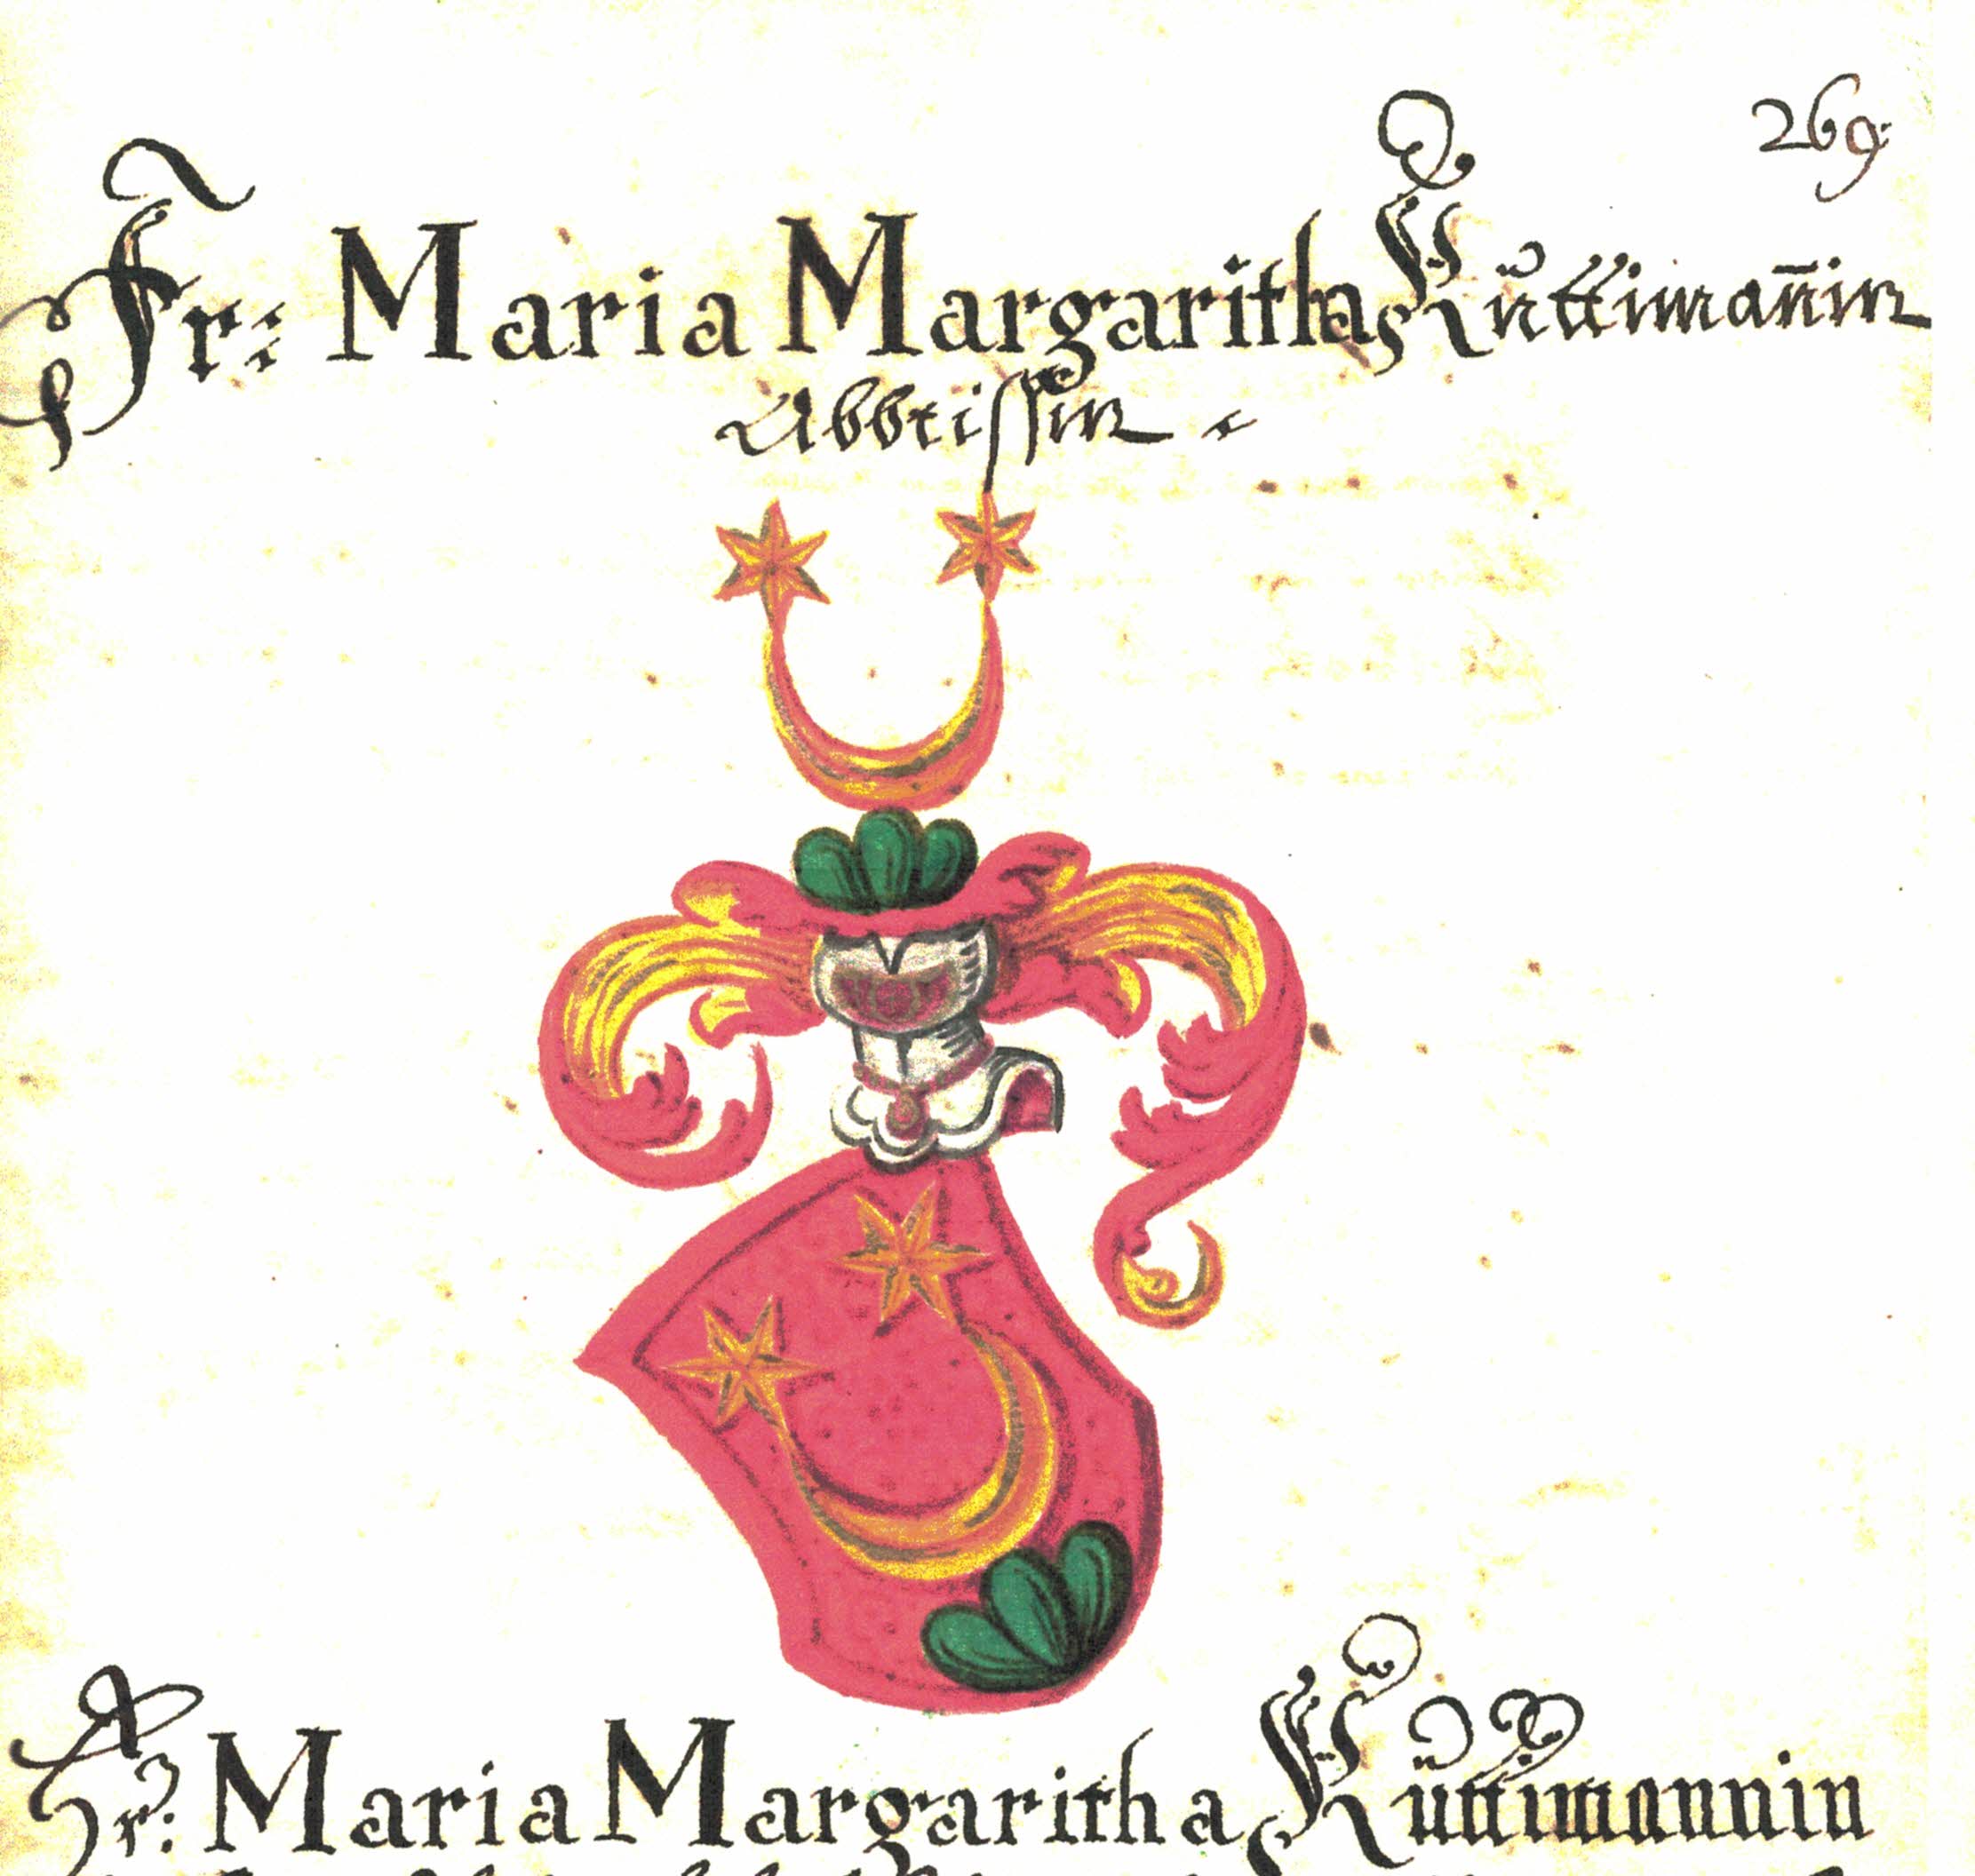 269.
Fr: Maria Margaritha Rüttimañin
Abbtissin
Fr: Maria Margaritha Rüttimannin